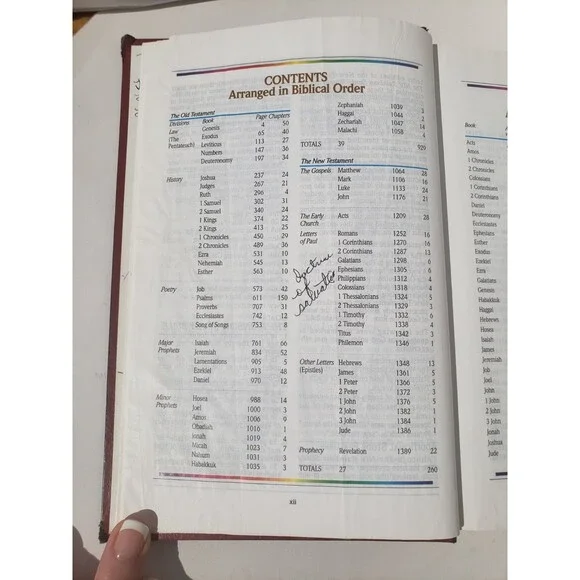 CONTENTS
Arranged in Biblical Order
The Old Testament
Divisions Book Page Chapters
Law Genesis 4 50
(The Exodus 65 40
Pentateuch) Leviticus 113 27
Numbers 147 36
Deuteronomy 197 34
History Joshua 237 24
Judges 267 21
Ruth 296 4
1 Samuel 302 31
2 Samuel 340 24
1 Kings 374 22
2 Kings 413 25
1 Chronicles 450 29
2 Chronicles 489 36
Ezra 531 10
Nehemiah 545 13
Esther 563 10
Poetry Job 573 42
Psalms 611 150
Proverbs 707 31
Ecclesiastes 742 12
Song of Songs 753 8
Major Isaiah 761 66
Prophets Jeremiah 834 52
Lamentations 905 5
Ezekiel 913 48
Daniel 970 12
Minor Hosea 988 14
Prophets Joel 1000 3
Amos 1006 9
Obadiah 1016 1
Jonah 1019 4
Micah 1023 7
Nahum 1031 3
Habakkuk 1035 3
Zephaniah 1039 3
Haggai 1044 2
Zechariah 1047 14
Malachi 1058 4
TOTALS 39 929
The New Testament
The Gospels Matthew 1064 28
Mark 1106 16
Luke 1133 24
John 1176 21
The Early Acts 1209 28
Church
Letters Romans 1252 16
of Paul 1 Corinthians 1270 16
2 Corinthians 1287 13
Galatians 1298 6
Ephesians 1305 6
Philippians 1312 4
Colossians 1318 4
1 Thessalonians 1324 5
2 Thessalonians 1329 3
1 Timothy 1332 6
2 Timothy 1338 4
Titus 1342 3
Philemon 1346 1
Doctrine
of
salvation
Other Letters Hebrews 1348 13
(Epistles) James 1361 5
1 Peter 1366 5
2 Peter 1372 3
1 John 1376 5
2 John 1382 1
3 John 1384 1
Jude 1386 1
Prophecy Revelation 1389 22
TOTALS 27 260
xii
Book
Acts
Amos
1 Chronicles
2 Chronicles
Colossians
1 Corinthians
2 Corinthians
Daniel
Deuteronomy
Ecclesiastes
Ephesians
Esther
Exodus
Ezekiel
Ezra
Galatians
Genesis
Habakkuk
Haggai
Hebrews
Hosea
Isaiah
James
Jeremiah
Job
Joel
John
1 John
2 John
3 John
Jonah
Joshua
Jude